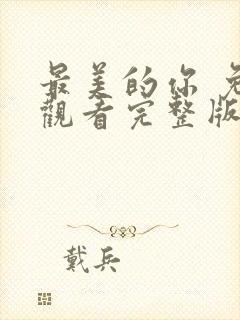 最美的你 免
觀看完整版
戴兵